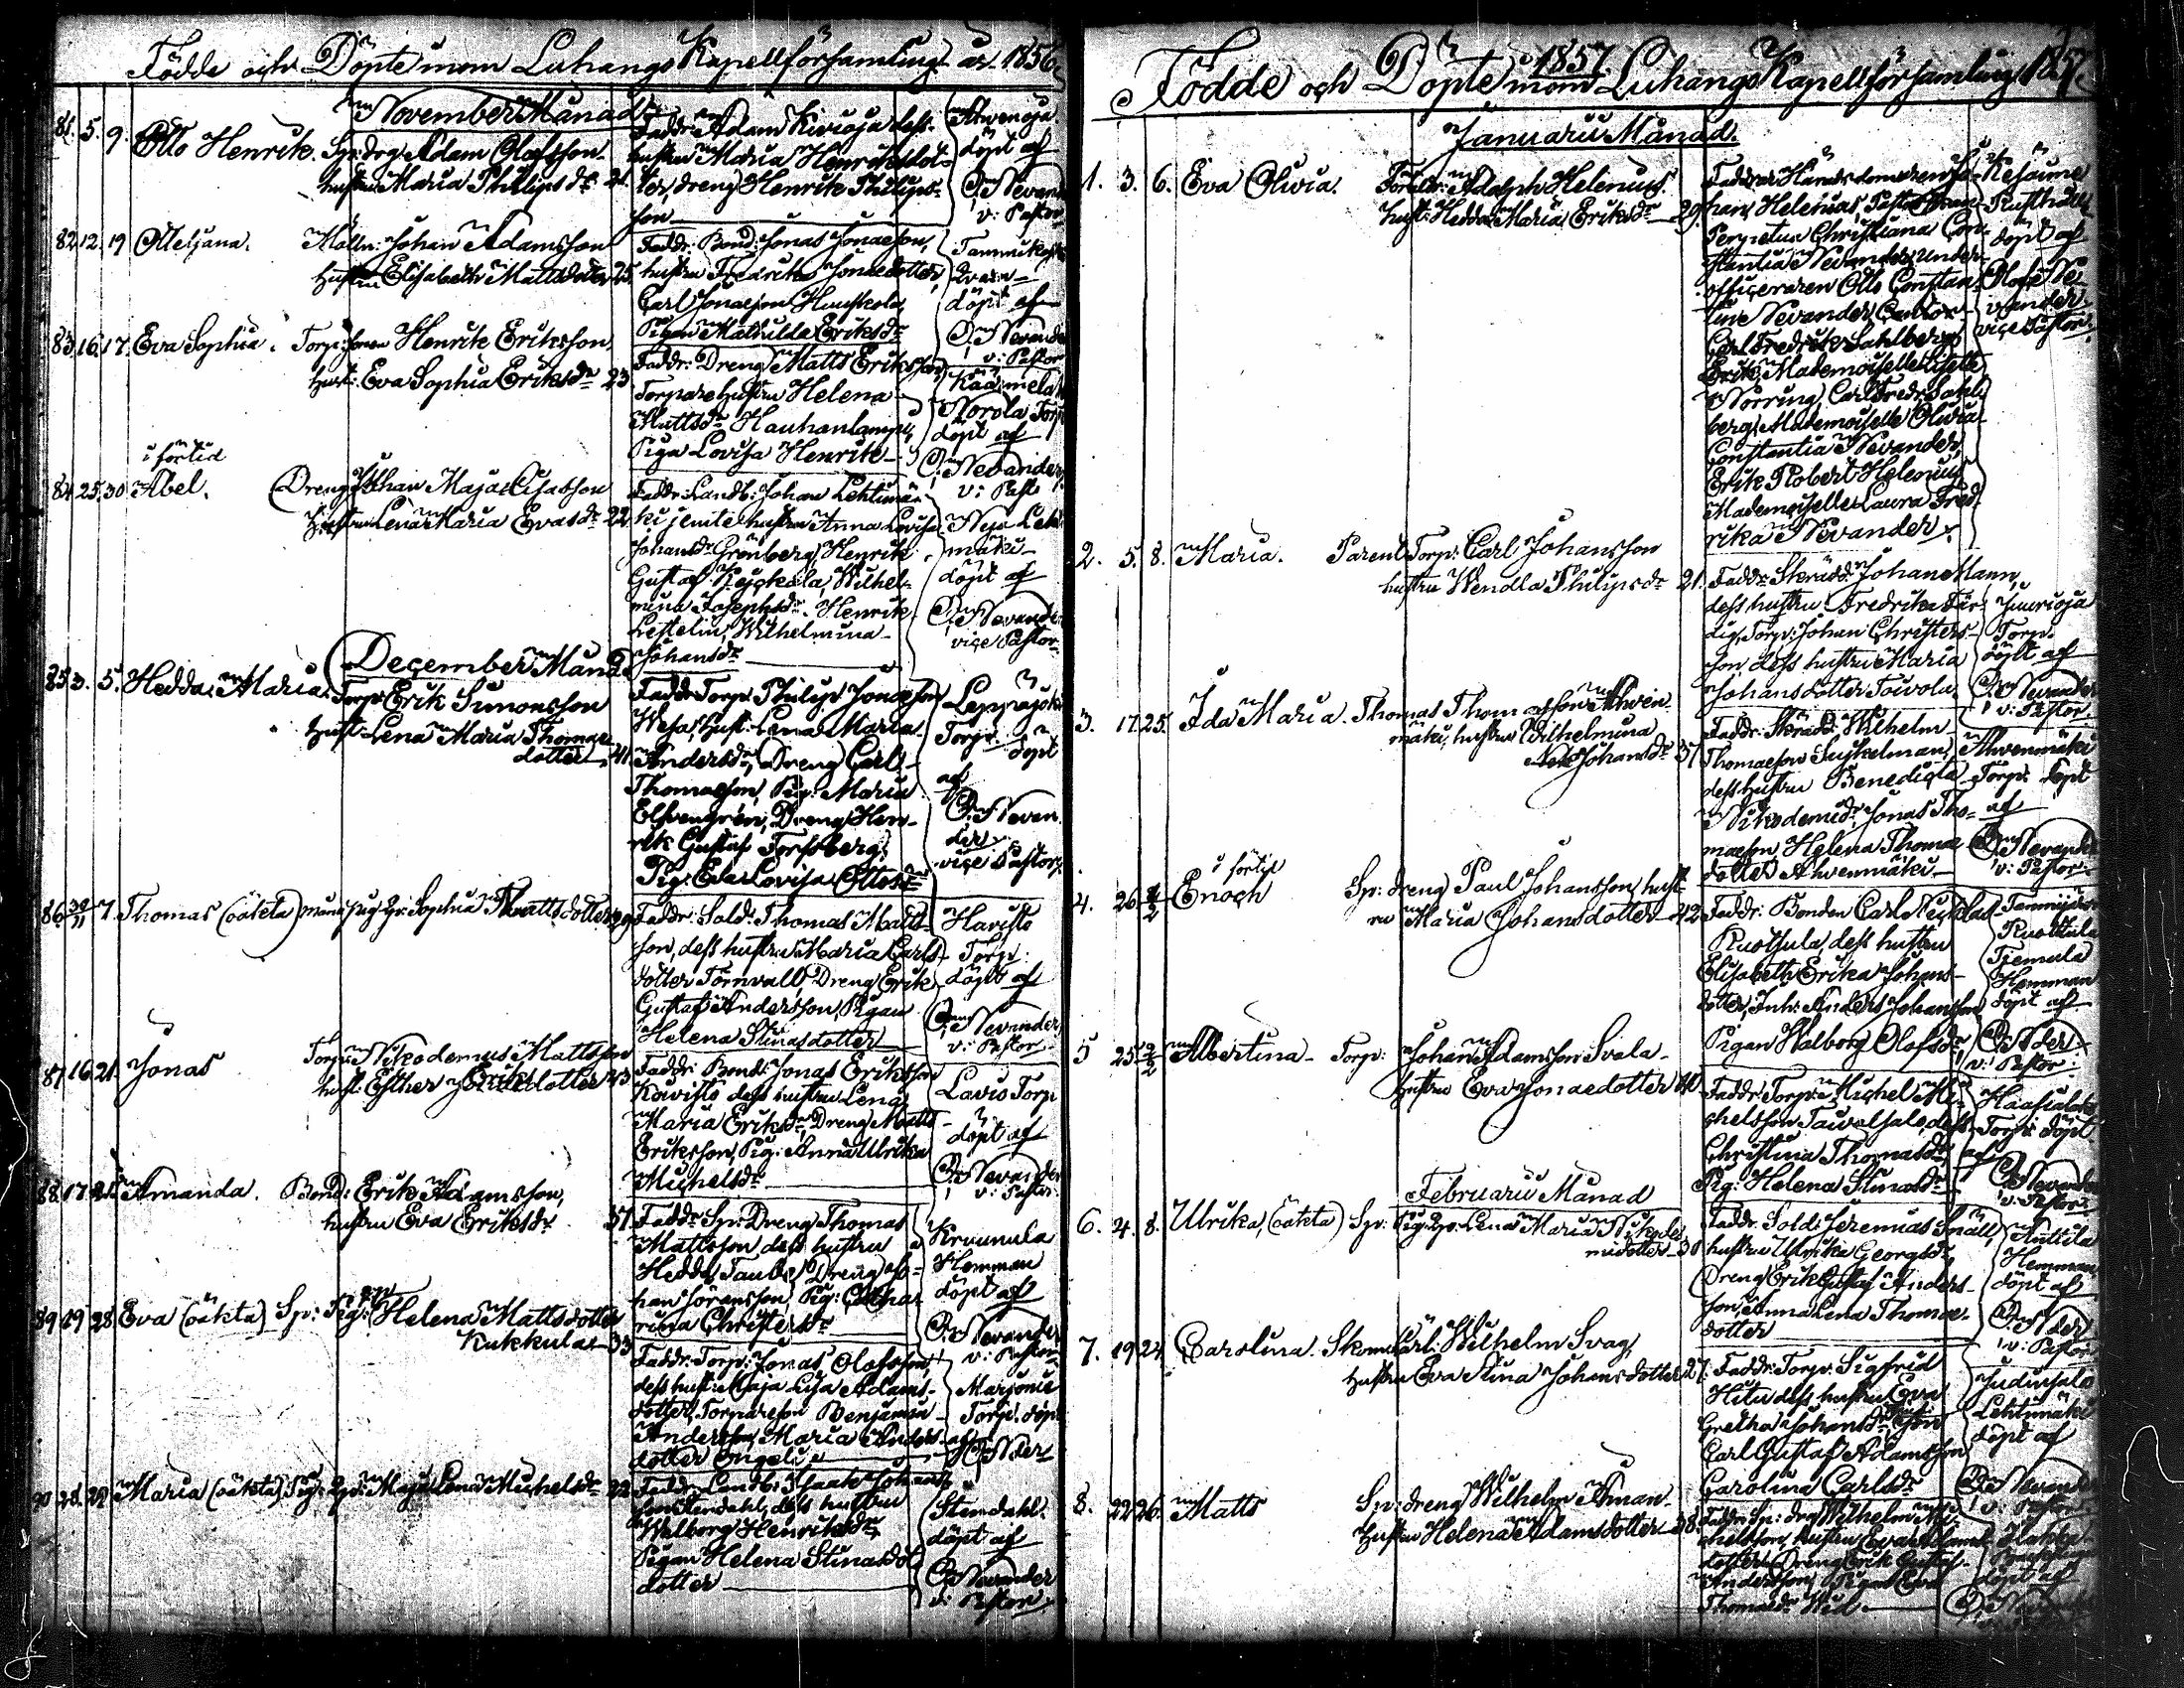 Födde och Döpte inom Luhango Kapellförsamling år 1856.
November Månad
81. 5. 9. Otto Henrik. Sp: drg Adam Olofsson
hustru Maria Philipsdr 21.
Faddr: Adam Kivioja dess
hustru Maria Henriksdot-
ter, dreng Henrik Philips-
son
Ahvenoja
döpt af
O. Nevander
v: Pastor
82. 12. 19 Otteljana. Johan Adamsson
Hustru Elisabeth Mattsdotter 25.
Faddr: Bond: Jonas Jonaeson,
hustru Fredrika Jonaedotter,
Carl Jonaeson
Pigan Mathilda Eriksdr
döpt af
O. Nevander
v: Pastor
83. 16. 17. Eva Sophia. Henrik Eriksson,
hust: Eva Sophia Eriksdr 23
Faddr: Dreng Matts Eriksson,
Torpare hustru Helena
Mattsdr Hauhanlampi,
Piga Lovisa Henriks-
Norola Torp
döpt af
O. Nevander
v: Past
i förtid
84. 25. 30. Abel. Dreng Johan Maja Lisasson
Hustru Lena Maria Evasdr 22.
Faddr: Landb: Johan Lehtimä-
ki jemte hustru Anna Lovisa
Johansdr Grönberg, Henrik
Gustaf Wilhel-
mina Josephsdr. Henrik
Lestelin, Wilhelmina
Johansdr
mäki
döpt af
O. Nevander
vice Pastor
December Månad
85. 3. 5. Hedda Maria. Torp: Erik Simonsson
Hust: Lena Maria Thomae
dotter 41.
Faddr: Torp: Philip Jonaeson
Wesa, Hust: Lena Maria
Andersdr, Dreng Carl
Thomaeson, Pig: Maria
Elfvengrén, Dreng Hen-
rik Gustaf Forssberg,
Pig: Eva Lovisa Ottosdr
Torp: döpt
af
O. Nevan
der
vice Pastor.
86. 30/11 7. Thomas (oäkta) Sophia Mattsdotter 29
Faddr: Sold: Thomas Matts-
son, dess hustru Maria Carls-
dotter Törnvall, Dreng Erik
Gustaf Andersson, Pigan
Helena Stinasdotter
Havisto
Torp:
döpt af
O. Nevander
v: Pastor
87. 16. 21. Jonas Torp: Nikodemus Mattsson
hust: Esther Eriksdotter 43
Faddr: Bond: Jonas Eriksson
Koivisto dess hustru Lena
Maria Eriksdr, Dreng Matts
Eriksson, Pig: Anna Ulrika
Michelsdr
Lavis Torp
döpt af
O. Nevander
v: Pastor
88. 17. 21. Amanda. Bond: Erik Adamsson,
hustru Eva Eriksdr 37.
Faddr: Sp: Dreng Thomas
Mattsson dess hustru
Hedda Taube, Dreng Jo-
han Göransson, Pig: Catha-
rina Christersdr
Kruunula
Hemman
döpt af
O. Nevander
v: Pastor
89. 19. 28. Eva (oäkta) Sp: Pig: Helena Mattsdotter
Kukkula 33
Faddr: Torp: Jonas Olofsson,
dess hust: Maja Lisa Adams-
dotter, Torpareson Benjamin
Andersson, Maria Anders-
dotter Engeli
Marjonie
Torp. döpt
af
O. Nder
90. 28. 29. Maria (oäkta) Maja Lena Michelsdr 22.
Faddr: Landb: Isaak Johans-
son Stendahl, dess hustru
Walborg Henriksdr,
Pigan Helena Stinasdot
dotter
Stendahl.
döpt af
O. Nevander
v: Pastor.
1857.
Födde och Döpte inom Luhango Kapellförsamling 1857.
Januarii Månad.
1. 3. 6. Eva Olivia. Adolph Helenius.
hust: Hedda Maria Eriksdr 29.
Faddrar Häradsdomaren Jo-
han Helenius,
Perpetua Christiana Con-
stantia Nevander, Under-
officeraren Otto Constan-
tine Nevander, Cantor
Carl Fredrik Sahlberg
Erik Mademoiselle Lisette
Norring, Carl Fredr: Sahl-
berg, Mademoiselle Olivia
Constantia Nevander,
Erik Robert Helenius
Mademoiselle Laura Fred-
rika Nevander.
Rusthåll
döpt af
Olof Ne-
vander
vice Pastor.
2. 5. 8. Maria. Torp: Carl Johansson
hustru Wendla Philipsdr 21.
Faddr: Skrädd: Johan Mann,
dess hustru Fredrika Fär-
dig, Torp: Johan Christers-
son, dess hustru Maria
Johansdotter Toivola
Juurioja
Torp.
döpt af
O. Nevander
v: Pastor.
3. 17. 25. Ida Maria. Thomas Thomasson Ahven
mäki, hustru Wilhelmina
Johansdr 37
Faddr: Skrädd: Wilhelm
Thomaeson
dess hustru Benedicta
Nikodemidr, Jonas Tho-
maeson, Helena Thomae
dotter Ahvenmäki
Ahvenmäki
Torp: döpt
af
O. Nevander
v: Pastor.
i förtid
4. 26. Enoch Sp: dreng Paul Johansson, hust-
ru Maria Johansdotter 42.
Faddr: Bonden Carl
Ruottula, dess hustru
Elisabeth Erika Johans-
dotter, Inh: Anders Johansson
Pigan Walborg Olofsdr
Ruottula
Tiemala
Hemman
döpt af
O. Nder
v: Pastor
5 25. Albertina Torp: Johan Adamsson Svala
Hustru Eva Jonaedotter 40
Faddr: Torp: Michel Mi-
chelsson Tauvalsalo, dess
Christina Thomasdr
Pig: Helena Stinasdr
Torp: döpt
af
O. Nevander
v: Pastor.
Februarii Månad
6. 4. 8. Ulrika, (oäkta) Sp: Lena Maria Nikode
midotter 30
Faddr: Sold: Jeremias Snäll,
hustru Ulrika Georgsdr,
Dreng Erik Gustaf Anders-
son, Anna Lena Thomae-
dotter
Anttila
Hemman
döpt af
O. Nder
v: Pastor
7. 19. 24. Carolina. Carl Wilhelm Svag,
Hustru Eva Stina Johansdotter 27.
Faddr: Torp: Sigfrid
Hitu dess hustru Eva
Gretha Johansdr,
Carl Gustaf Adamsson
Carolina Carlsdr
Judinsalo
Lehtimäki
döpt af
O. Nevander
v: Pastor
8. 22. 26. Matts Sp: dreng Wilhelm Åman
Hustru Helena Adamsdotter 38.
Faddr: Sp: drg Wilhelm Mi-
chelsson, hustru Eva Adams-
dotter, Dreng Erik Gustaf
Andersson, Pigan
Thomasdr
döpt af